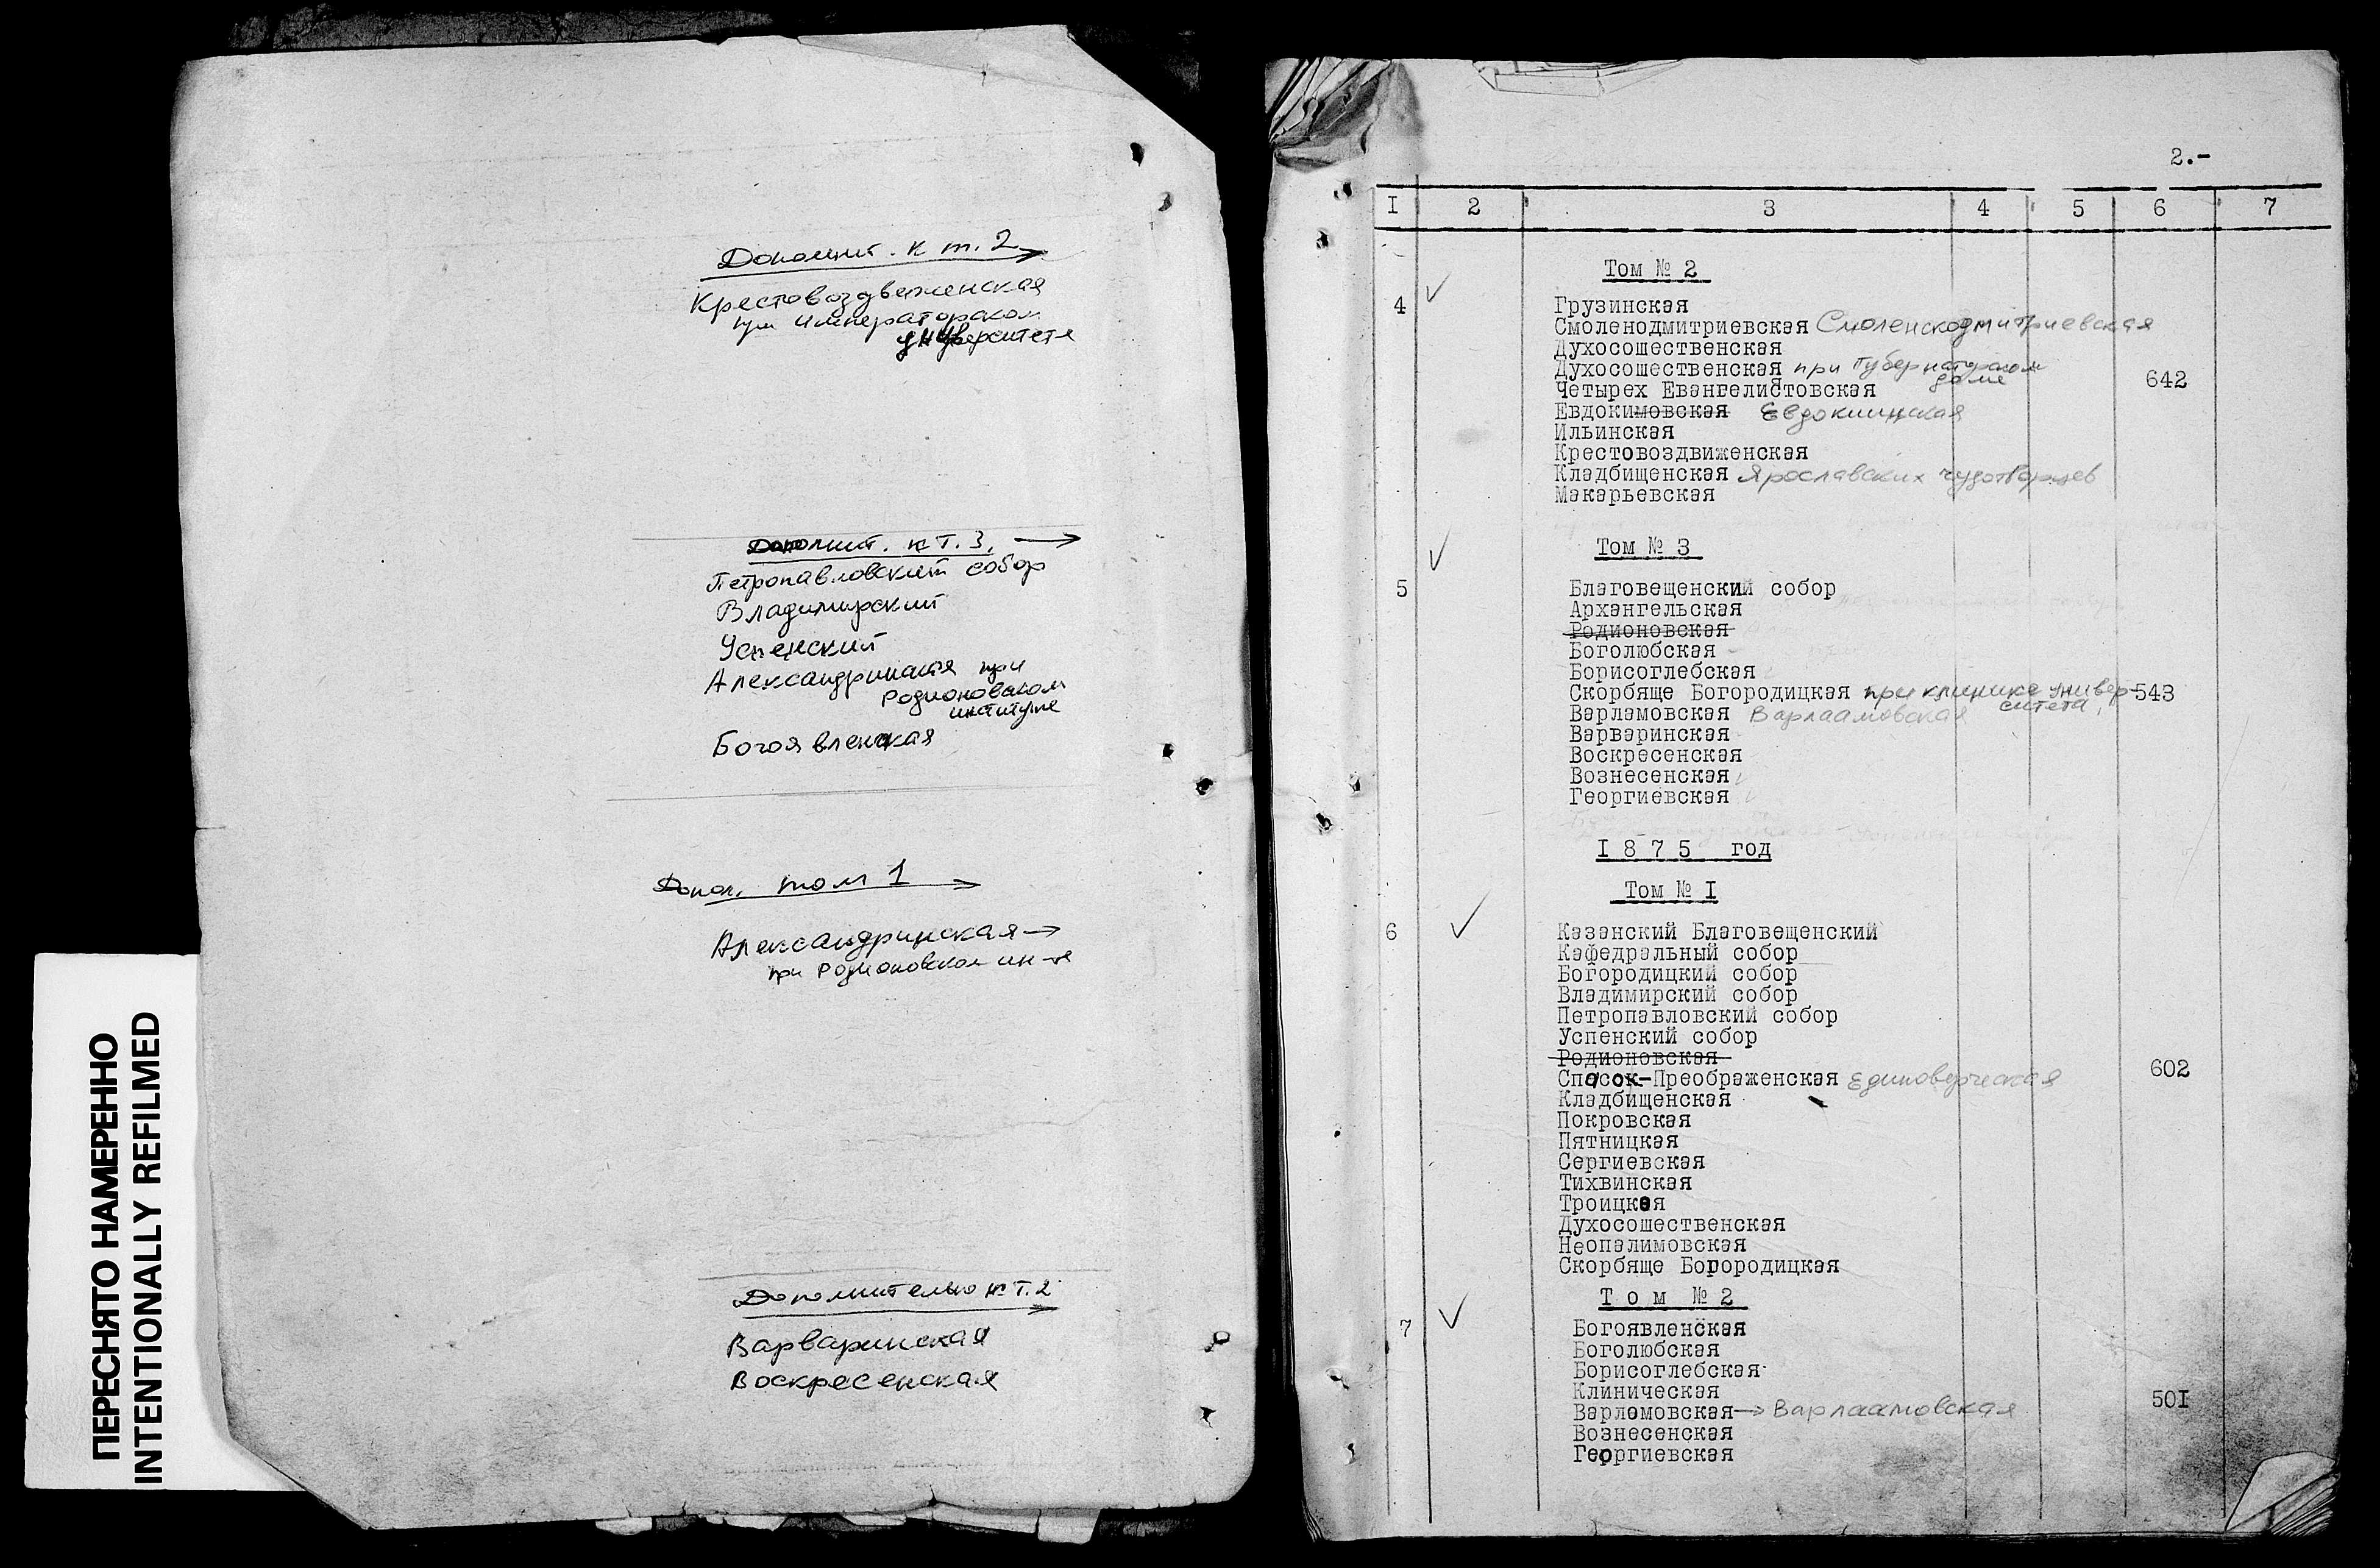 Дополнит. к т. 2
Крестовоздвиженская
при императорском
университете
Дополнит. к т. 3.
Петропавловский собор
Владимирский
Успенский
Александринская при
Родионовском
институте
Богоявленская
Допол. том 1
Александринская
при Родионовском ин-те
Дополнительно к т. 2
Варваринская
Воскресенская
ПЕРЕСНЯТО НАМЕРЕННО
INTENTIONALLY REFILMED
2.-
I 2 3 4 5 6 7
Том № 2
4 Грузинская
Смоленодмитриевская Смоленскодмитриевская
Духосошественская
Духосошественская при губернаторском
доме
Четырех Евангелистовская 642
Евдокимовская Евдокиинская
Ильинская
Крестовоздвиженская
Кладбищенская Ярославских чудотворцев
Макарьевская
Том № 3
5 Благовещенский собор
Архангельская
Родионовская
Боголюбская
Борисоглебская
Скорбяще Богородицкая при клинике универ- 543
ситета,
Варламовская Варлаамовская
Варваринская
Воскресенская
Вознесенская
Георгиевская
I 8 7 5 год
Том № I
6 Казанский Благовещенский
Кафедральный собор
Богородицкий собор
Владимирский собор
Петропавловский собор
Успенский собор
Родионовская
Спасок-Преображенская Единоверческая 602
Кладбищенская
Покровская
Пятницкая
Сергиевская
Тихвинская
Троицкая
Духосошественская
Неопалимовская
Скорбяще Богородицкая
Т о м № 2
7 Богоявленская
Боголюбская
Борисоглебская
Клиническая 50I
Варламовская → Варлаамовская
Вознесенская
Георгиевская